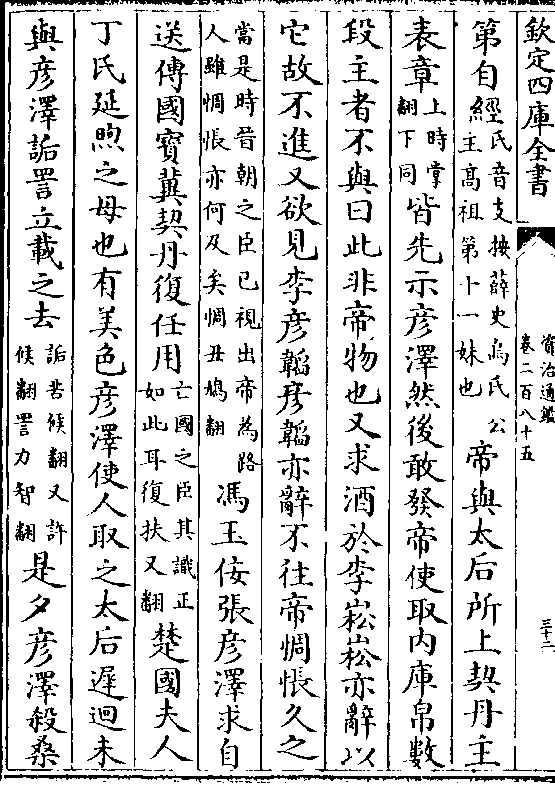 欽定四庫全書
資治通鑑
卷二百八十五
三十二
第自經氏音支按薛史烏氏公
主高祖第十一妹也帝與太后所上契丹主
表章上時掌
翻下同皆先示彦澤然後敢發帝使取内庫帛數
段主者不與曰此非帝物也又求酒於李崧崧亦辭以
它故不進又欲見李彦韜彦韜亦辭不往帝惆悵久之
當是時晉朝之臣已視出帝為路
人雖惆悵亦何及矣惆丑鳩翻馮玉佞張彦澤求自
送傳國寶冀契丹復任用亡國之臣其識正
如此耳復扶又翻楚國夫人
丁氏延煦之母也有美色彦澤使人取之太后遲迴未
與彦澤詬詈立載之去詬苦候翻又許
候翻詈力智翻是夕彦澤殺桑